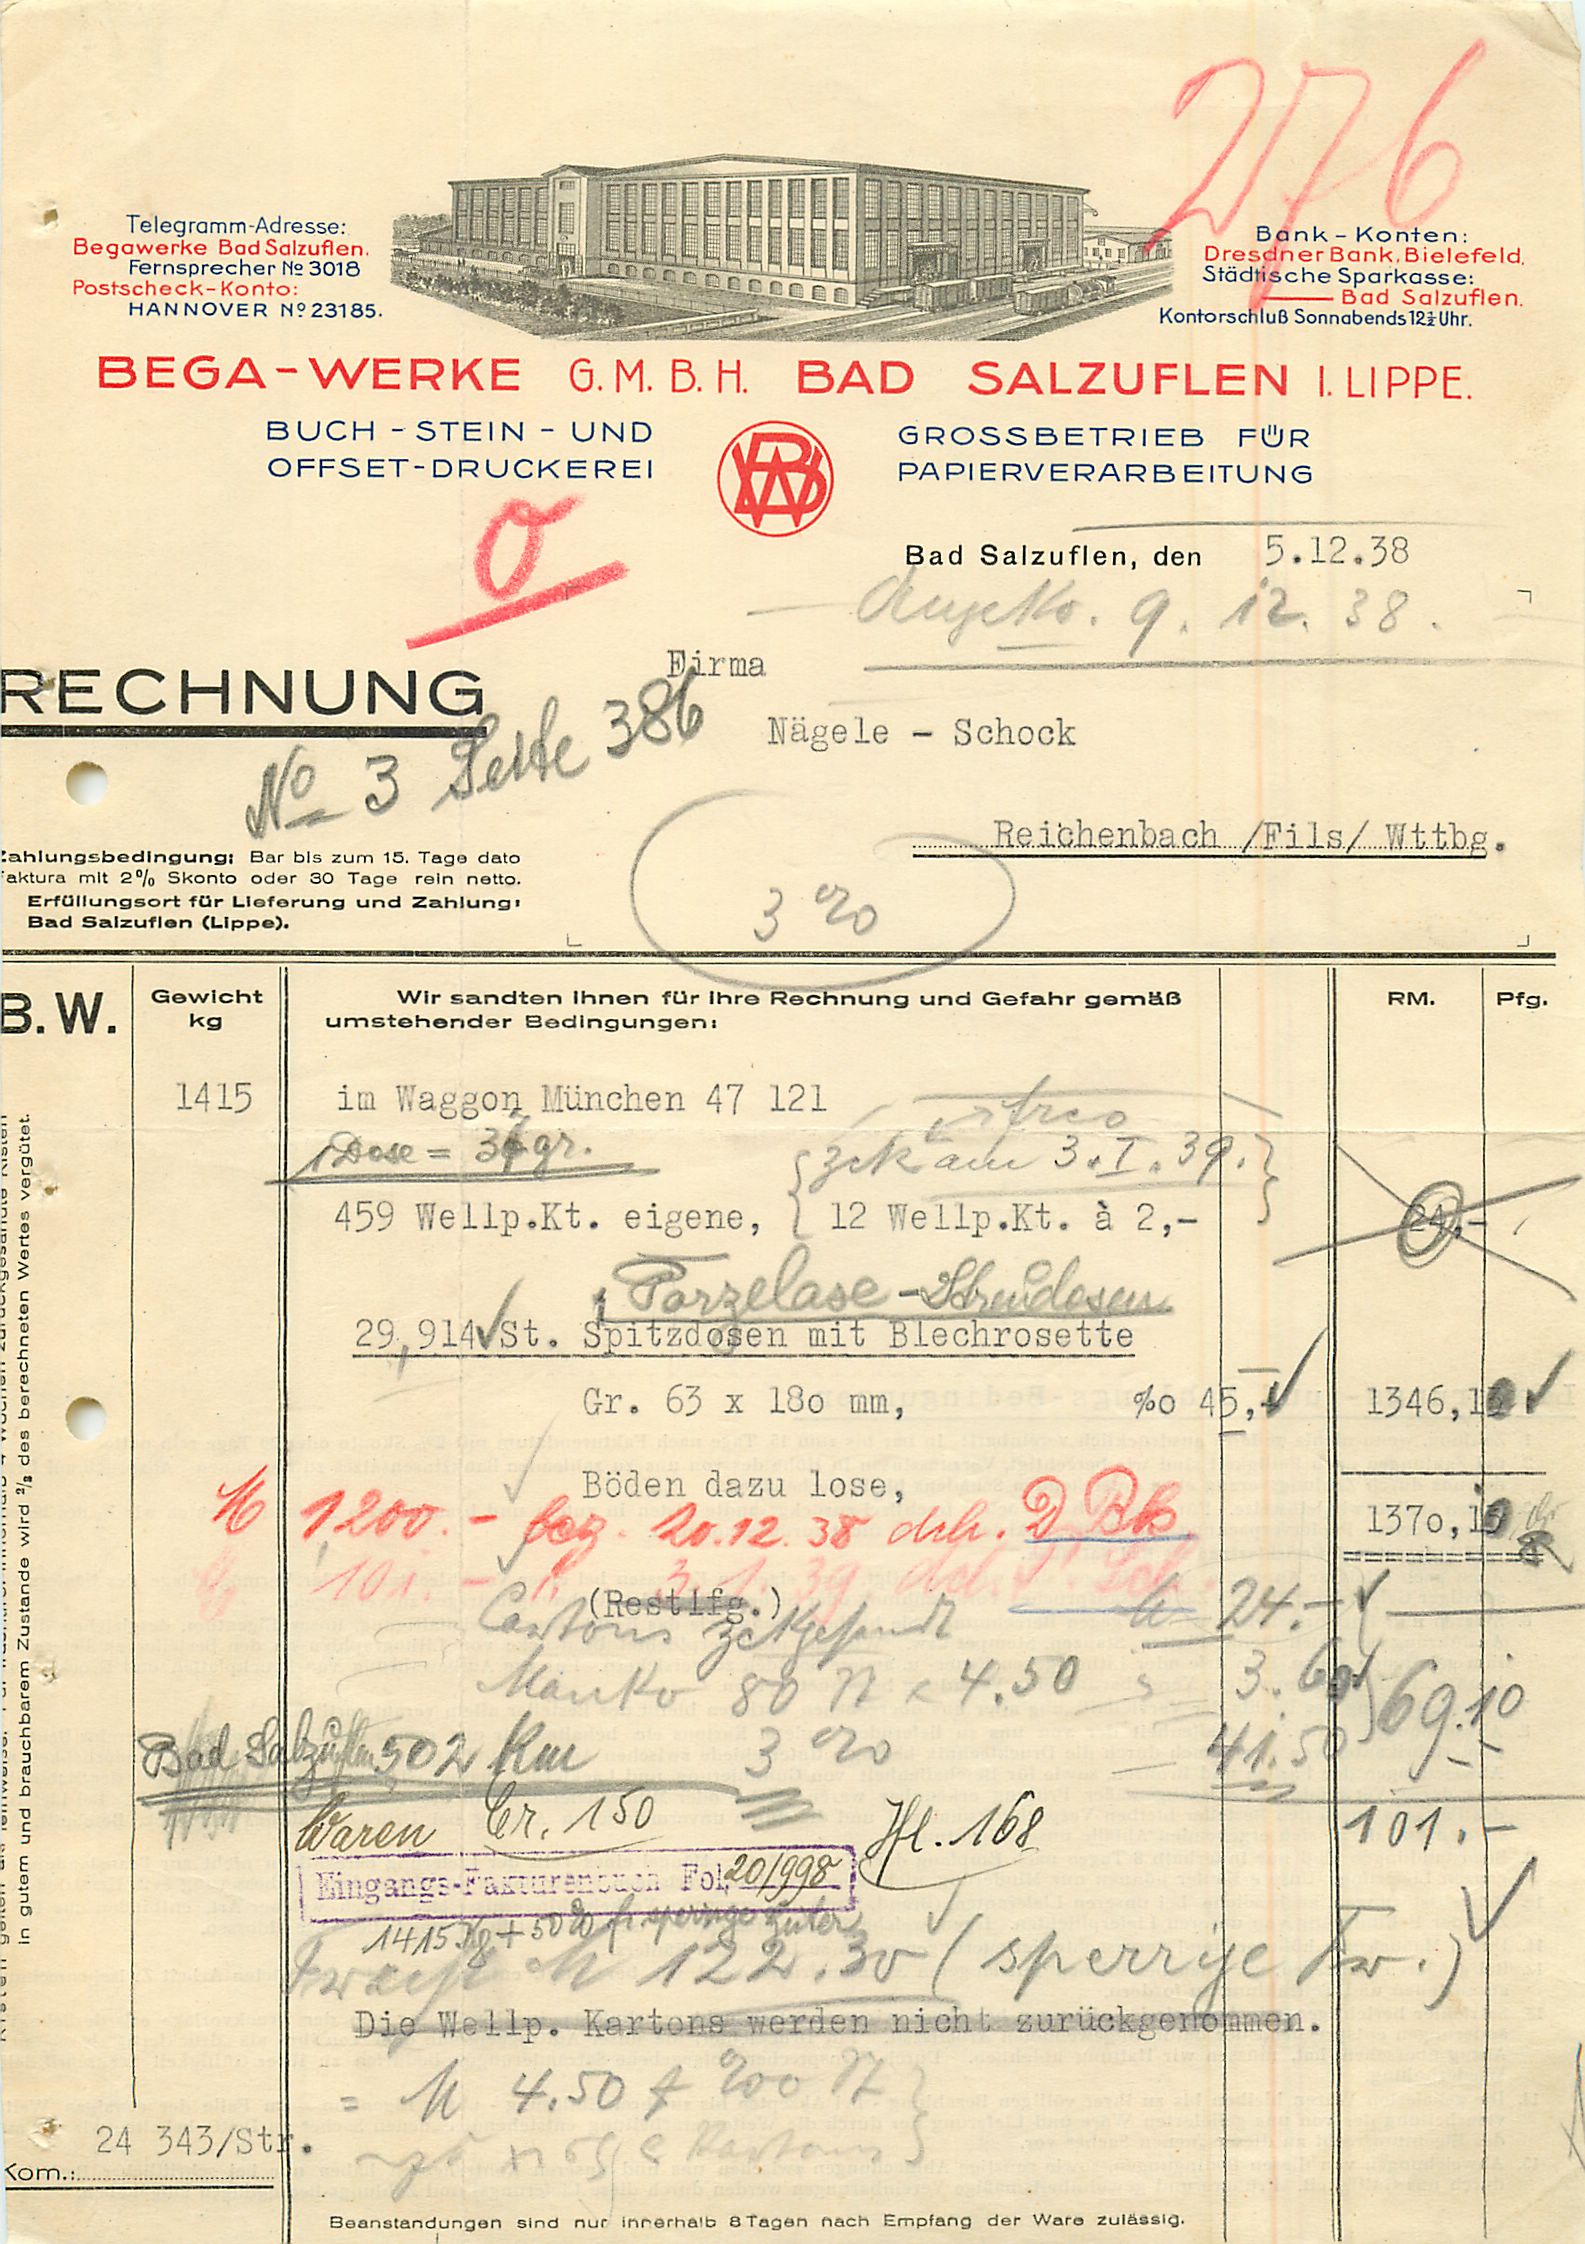 276
Telegramm-Adresse:
Begawerke Bad Salzuflen.
Fernsprecher No 3018
Postscheck-Konto:
HANNOVER No 23185.
Bank-Konten:
Dresdner Bank, Bielefeld.
Städtische Sparkasse:
Bad Salzuflen.
Kontorschluß Sonnabends 12½ Uhr.
BEGA-WERKE G.M.B.H. BAD SALZUFLEN I. LIPPE.
BUCH - STEIN - UND
OFFSET-DRUCKEREI
GROSSBETRIEB FÜR
PAPIERVERARBEITUNG
Bad Salzuflen, den 5.12.38
9.12.38.
Firma
RECHNUNG
No 3 Seite 386
Nägele - Schock
Reichenbach /Fils/ Wttbg.
Zahlungsbedingung: Bar bis zum 15. Tage dato
Faktura mit 2% Skonto oder 30 Tage rein netto.
Erfüllungsort für Lieferung und Zahlung:
Bad Salzuflen (Lippe).
3 %
B.W.
Gewicht
kg
Wir sandten Ihnen für Ihre Rechnung und Gefahr gemäß
umstehender Bedingungen:
RM.
Pfg.
1415
im Waggon München 47 121
frco
1 Dose = 34 gr.
zck am 3.I.39.
459 Wellp.Kt. eigene, 12 Wellp.Kt. à 2,-
24,-
Porzelase-Streudosen
29,914 St. Spitzdosen mit Blechrosette
Gr. 63 x 180 mm, %o 45,-
1346,1
Böden dazu lose,
M 1,200.- bez. 20.12.38 dch. D Bk
1370,1
101.- 3.1.39. dch.
(Restlfg.)
Cartons zckgesandt M 24.-
Manko 80 x 4.50 3.60
69.10
Bad Salzuflen 502 Km
3 %
41.50
Waren Cr. 150
Hl. 168
101.-
Eingangs-Fakturenbuch Fol. 20/998
1415 Kg + 50% f. sperrige Güter
Fracht M 122.30 (sperrige Fw.)
Die Wellp. Kartons werden nicht zurückgenommen.
= M 4.50
24 343/Str.
Kom.:
Beanstandungen sind nur innerhalb 8 Tagen nach Empfang der Ware zulässig.
in gutem und brauchbarem Zustande wird 2/3 des berechneten Wertes vergütet.